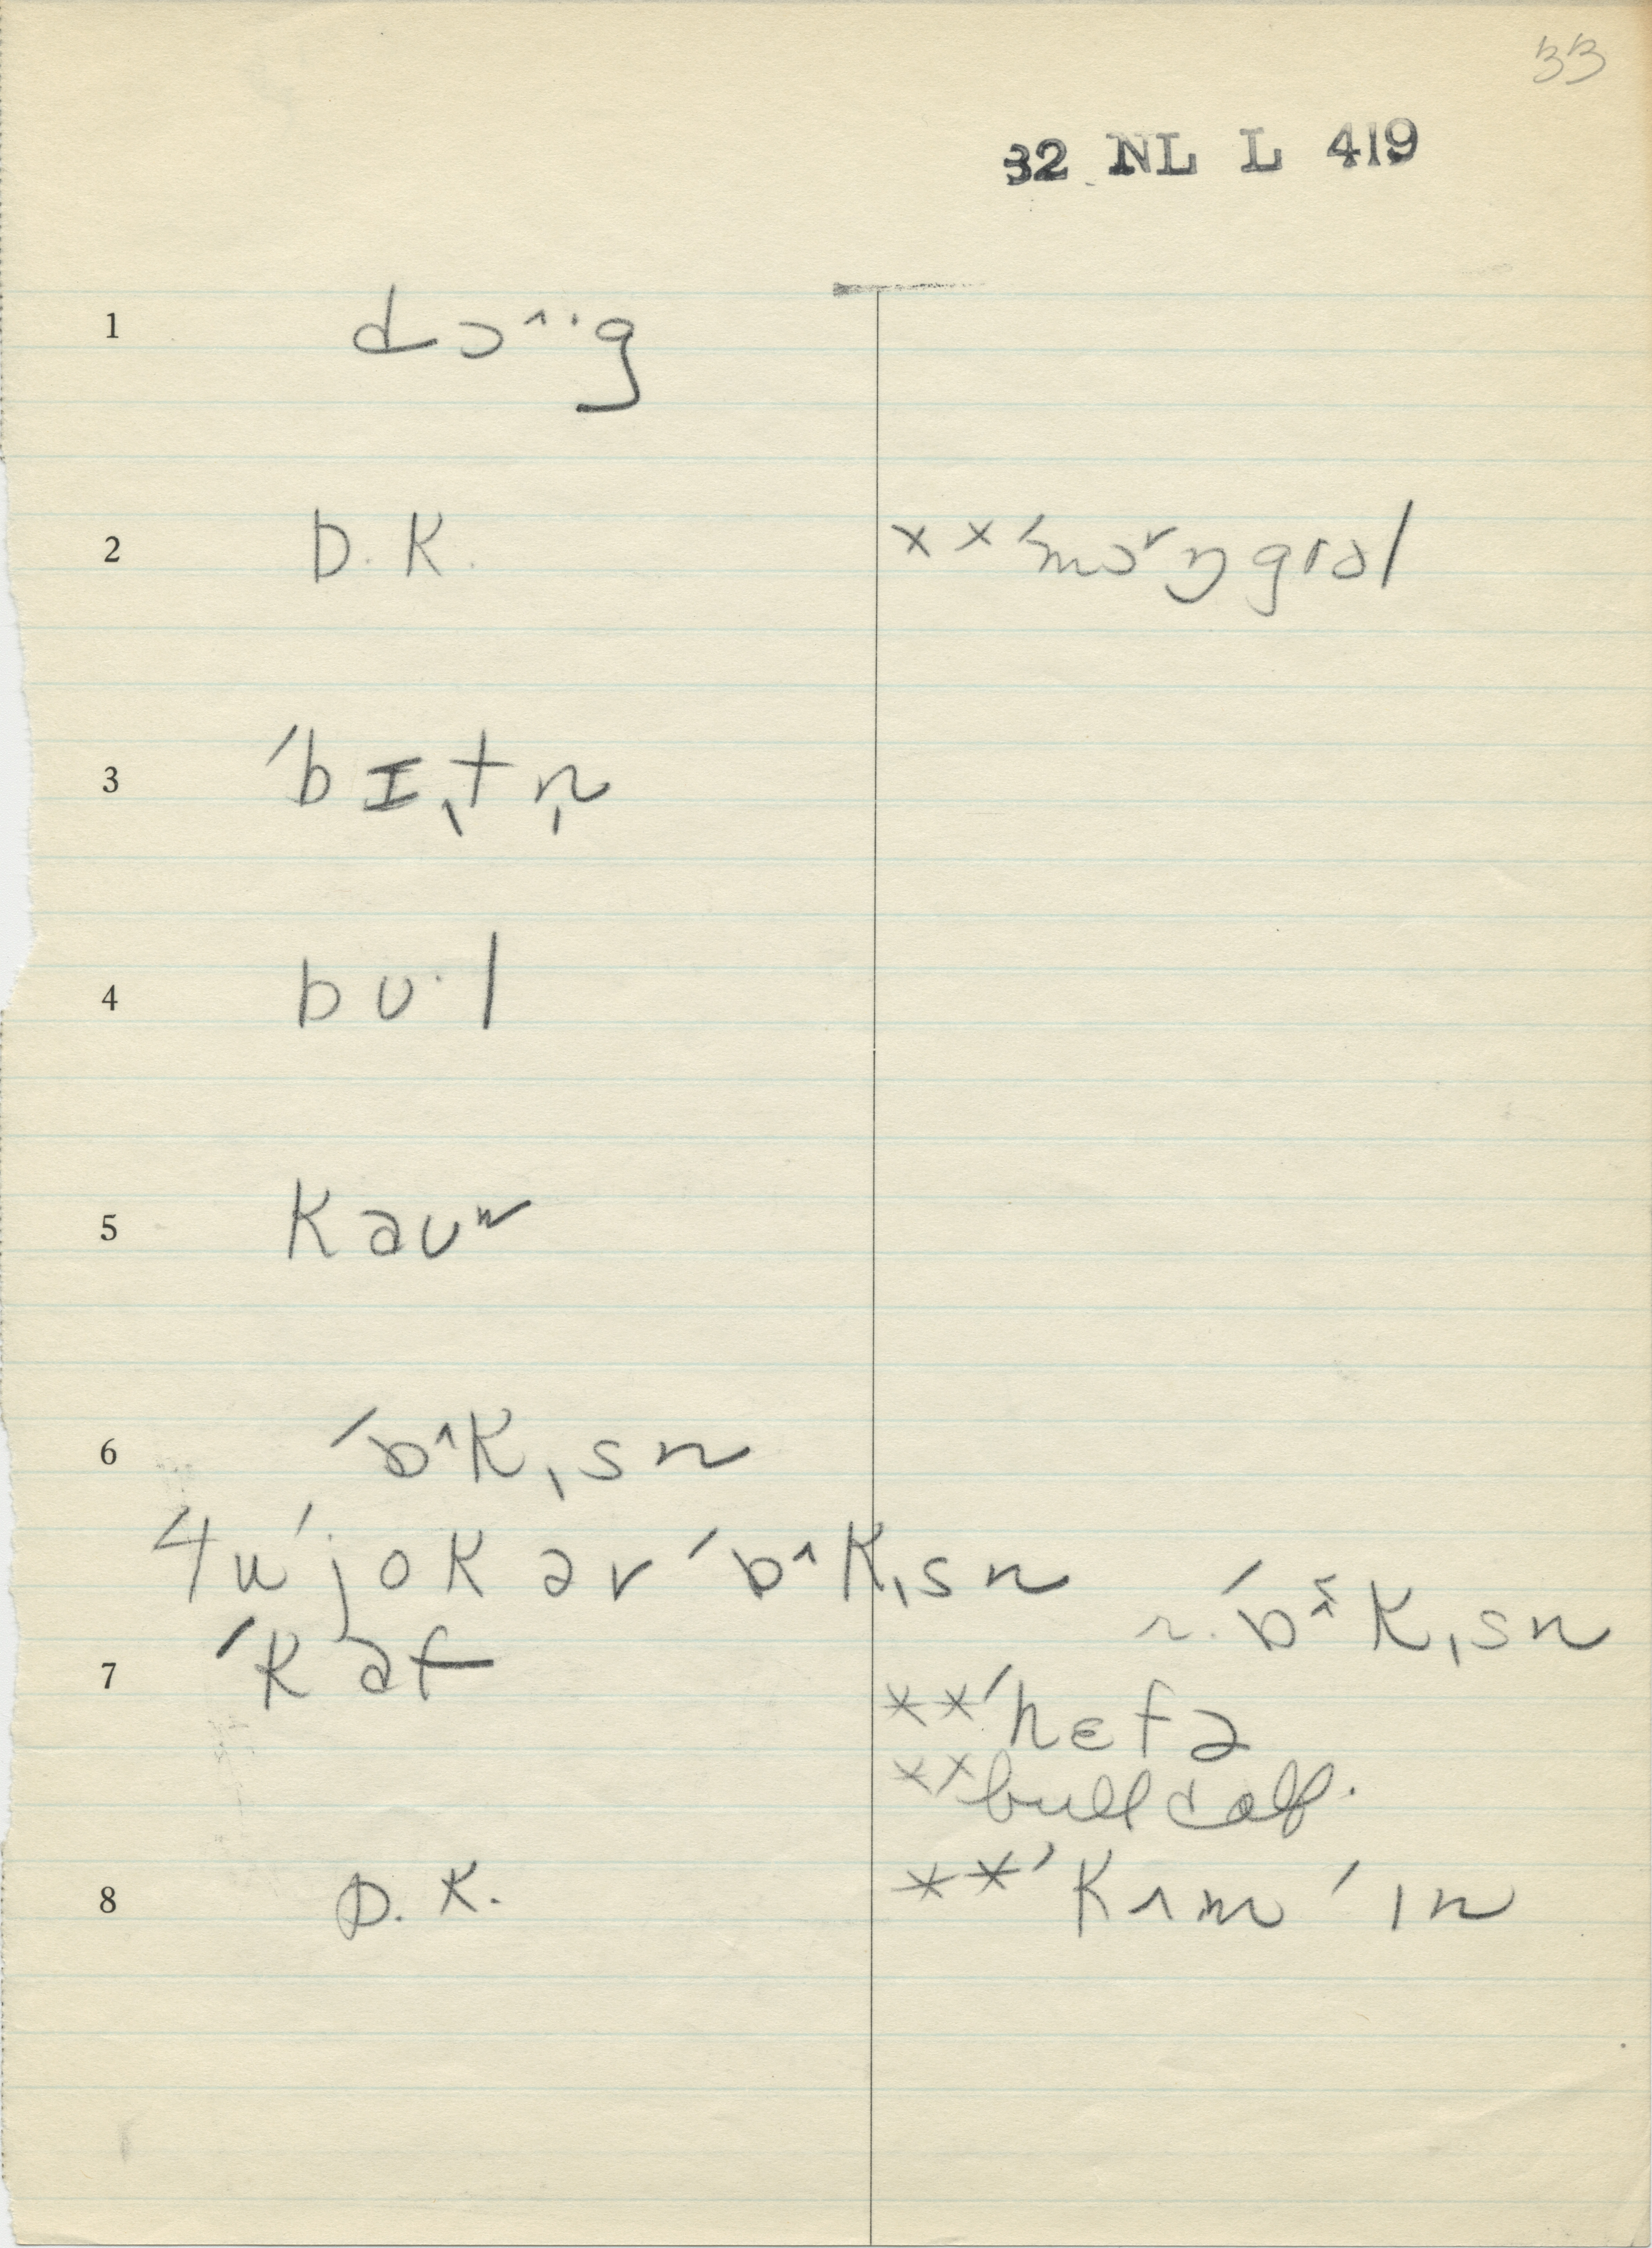 33
32 NL L 419
1 dɔ^··g
2 D. K. ××ˈmɔ˅ŋgrəl
3 ˈbɪˌtn̩
4 bʊ·l
5 kaʊⁿ
6 ˈb^kˌsn
4 uˈjok ər ˈb^kˌsn r. ˈbɜ^kˌsn
7 ˈkaf ××ˈhɛfə
××bull calf.
8 D. K. ××ˈkʌmˈɪn